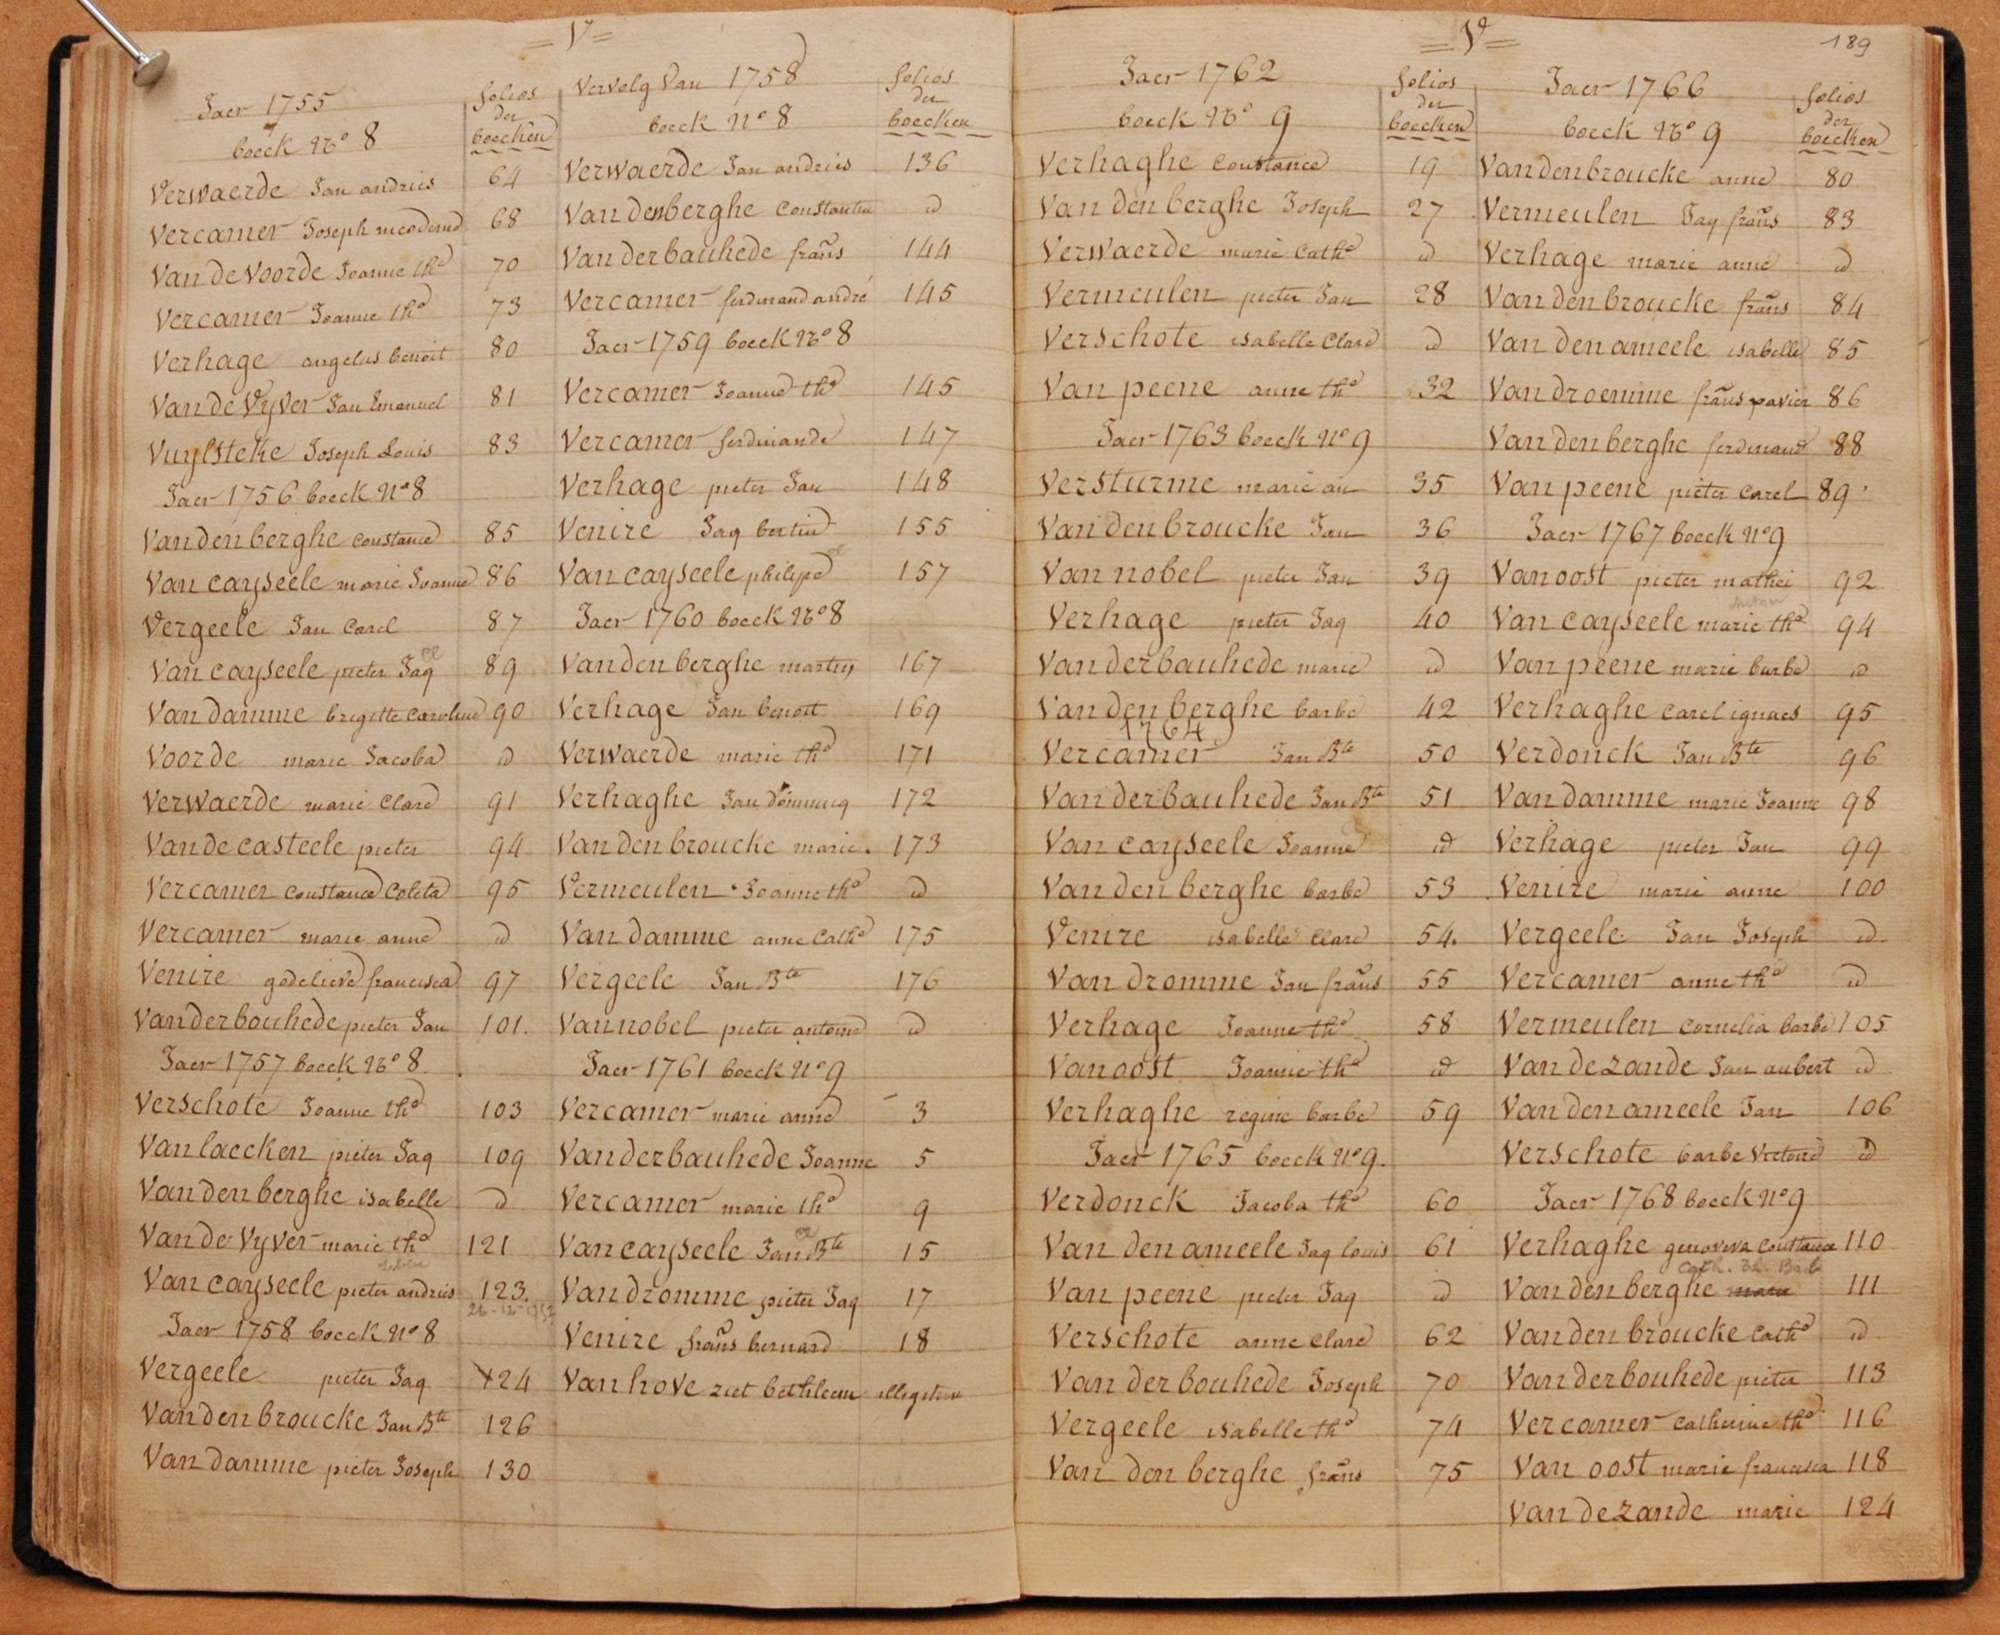 = V =
Jaer 1755
boeck No 8
folios
der
boecken
Verwaerde Jan andries 64
Vercamer Joseph 68
Van de Voorde Joanne thé 70
Vercamer Joanne thé 73
Verhage angelus benoit 80
Van de Vyver Jan Emanuel 81
Vuylsteke Joseph Louis 83
Jaer 1756 boeck No 8
Vanden berghe constance 85
Van cayseele marie Joanne 86
Vergeele Jan Carel 87
Van cayseele pieter Jaq 89
Van damme brigitte Caroline 90
Voorde marie Jacoba id
Verwaerde marie Clare 91
Van de casteele pieter 94
Vercamer constance Coleta 95
Vercamer marie anne id
Venire godelieve francisca 97
Vanderbouhede pieter Jan 101.
Jaer 1757 boeck No 8.
Verschote Joanne thé 103
Van laecken pieter Jaq 109
Vanden berghe isabelle id
Van de Vyver marie thé 121
Van cayseele pieter andries 123.
Jaer 1758 boeck No 8
Vergeele pieter Jaq 124
Vanden broucke Jan Bte 126
Van damme pieter Joseph 130
Vervolg Van 1758
boeck No 8
folios
der
boecken
Verwaerde Jan andries 136
Van denberghe Constantin id
Van der bauhede frañs 144
Vercamer ferdinand andré 145
Jaer 1759 boeck No 8
Vercamer Joanne thé 145
Vercamer ferdinande 147
Verhage pieter Jan 148
Venire Jaq bertin 155
Van cayseele philipe 157
Jaer 1760 boeck No 8
Vanden berghe martin 167
Verhage Jan benoit 169
Verwaerde marie thé 171
Verhaghe Jan Dominiq 172
Van den broucke marie. 173
Vermeulen Joanne thé id
Van damme anne Cathé 175
Vergeele Jan Bte 176
Van nobel pieter antoine id
Jaer 1761 boeck No 9
Vercamer marie anne 3
Van der bauhede Joanne 5
Vercamer marie thé 9
Van cayseele Jan Bte 15
Van dromme pieter Jaq 17
Venire frañs bernard 18
Van hove ziet bethleem
= V =
Jaer 1762
boeck No 9
folios
der
boecken
Verhaghe Constance 19
Van den berghe Joseph 27
Verwaerde marie Cathé id
Vermeulen pieter Jan 28
Verschote isabelle Clare id
Van peene anne thé 32
Jaer 1763 boeck No 9
Versturme marie an 35
Van den broucke Jan 36
Van nobel pieter Jan 39
Verhage pieter Jaq 40
Van der bauhede marie id
Van den berghe barbe 42
1764
Vercamer Jan Bte 50
Van der bauhede Jan Bte 51
Van cayseele Joanne id
Van den berghe barbe 53
Venire isabelle Clare 54.
Van dromme Jan frañs 55
Verhage Joanne thé 58
Van oost Joanne thé id
Verhaghe regine barbe 59
Jaer 1765 boeck No 9.
Verdonck Jacoba thé 60
Van den ameele Jaq louis 61
Van peene pieter Jaq id
Verschote anne Clare 62
Van der bouhede Joseph 70
Vergeele isabelle thé 74
Van den berghe frañs 75
189
Jaer 1766
boeck No 9
folios
der
boecken
Van den broucke anne 80
Vermeulen Jaq frañs 83
Verhage marie anne id
Van den broucke frañs 84
Van den ameele isabelle 85
Van droemme frañs 86
Van den berghe ferdinand 88
Van peene pieter Carel 89
Jaer 1767 boeck No 9
Van oost pieter mathei 92
Van cayseele marie thé 94
Van peene marie barbe id
Verhaghe Carel ignaes 95
Verdonck Jan Bte 96
Van damme marie Joanne 98
Verhage pieter Jan 99
Venire marie anne 100
Vergeele Jan Joseph id.
Vercamer anne thé id
Vermeulen Cornelia barbe 105
Van de zande Jan aubert id
Van den ameele Jan 106
Verschote barbe id
Jaer 1768 boeck No 9
Verhaghe genoveva Constance 110
Van den berghe marie 111
Van den broucke Cathé id
Van der bouhede pieter 113
Vercamer Catherine thé 116
Van oost marie francisca 118
Van de zande marie 124